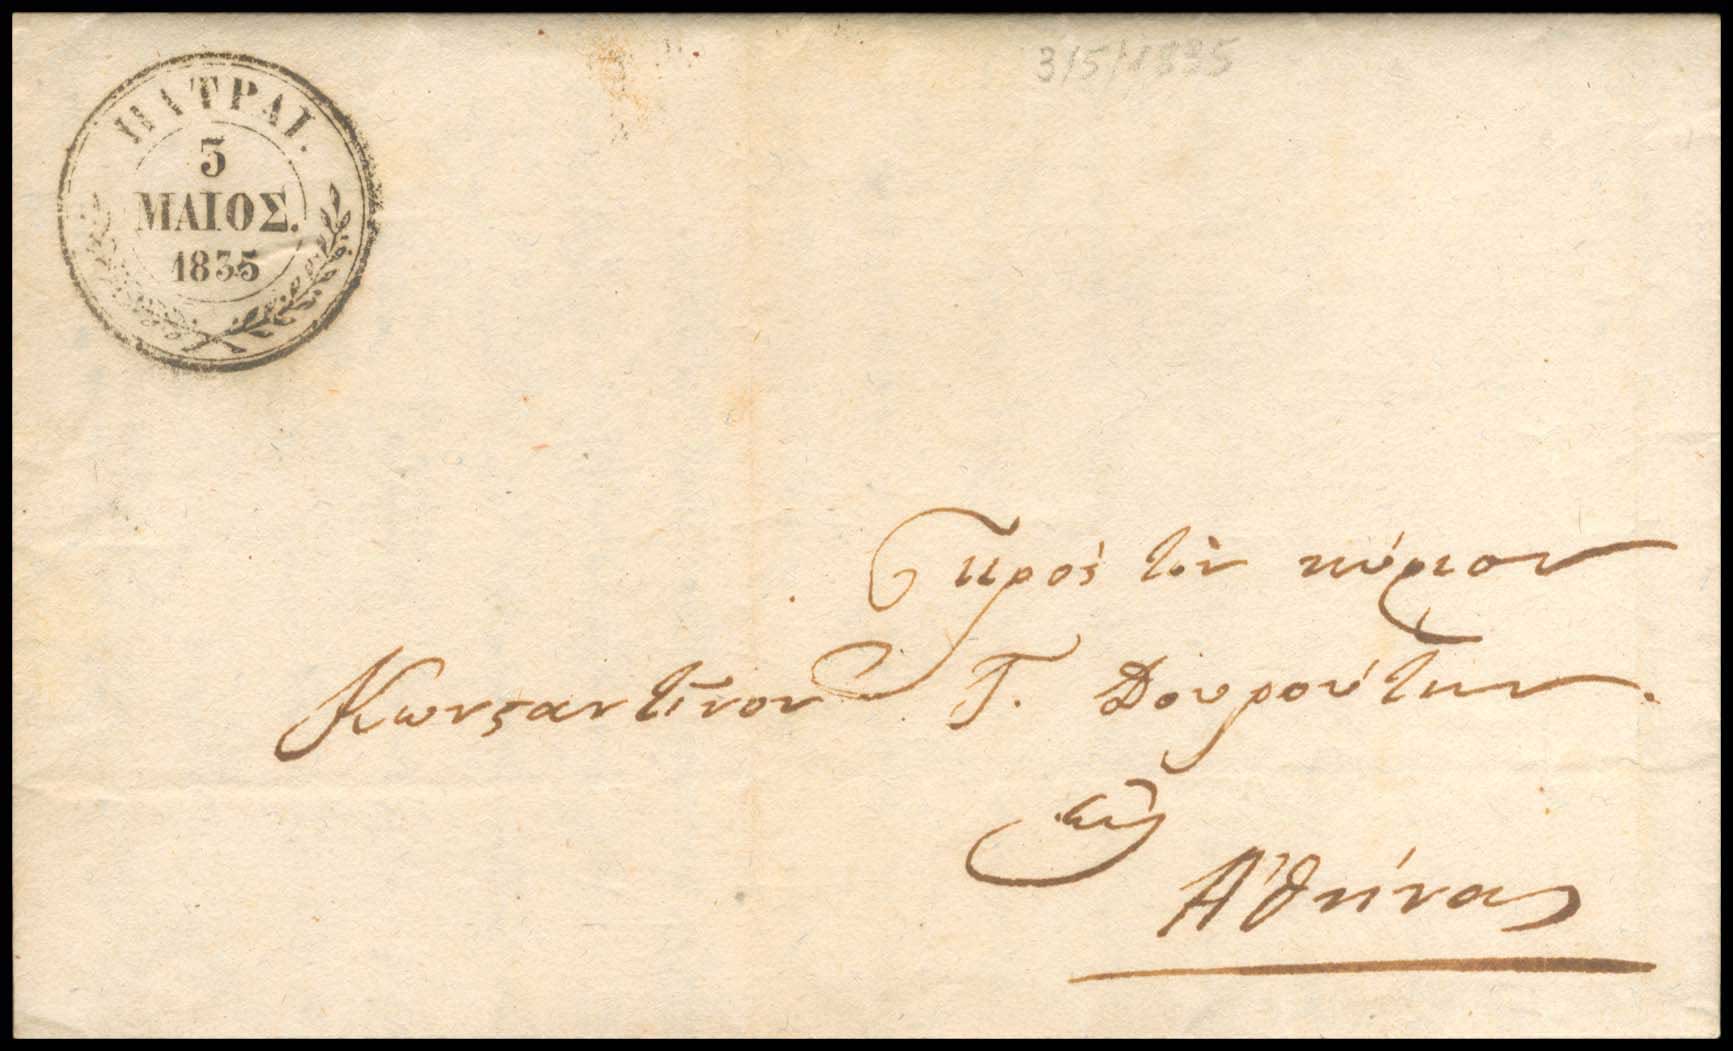 3/5/1835
ΠΑΤΡΑΙ.
3
ΜΑΙΟΣ.
1835
πρὸς τὸν κύριον
Κωνςαντῖνον Γ. Δουρούτην.
εἰς
Ἀθήνας